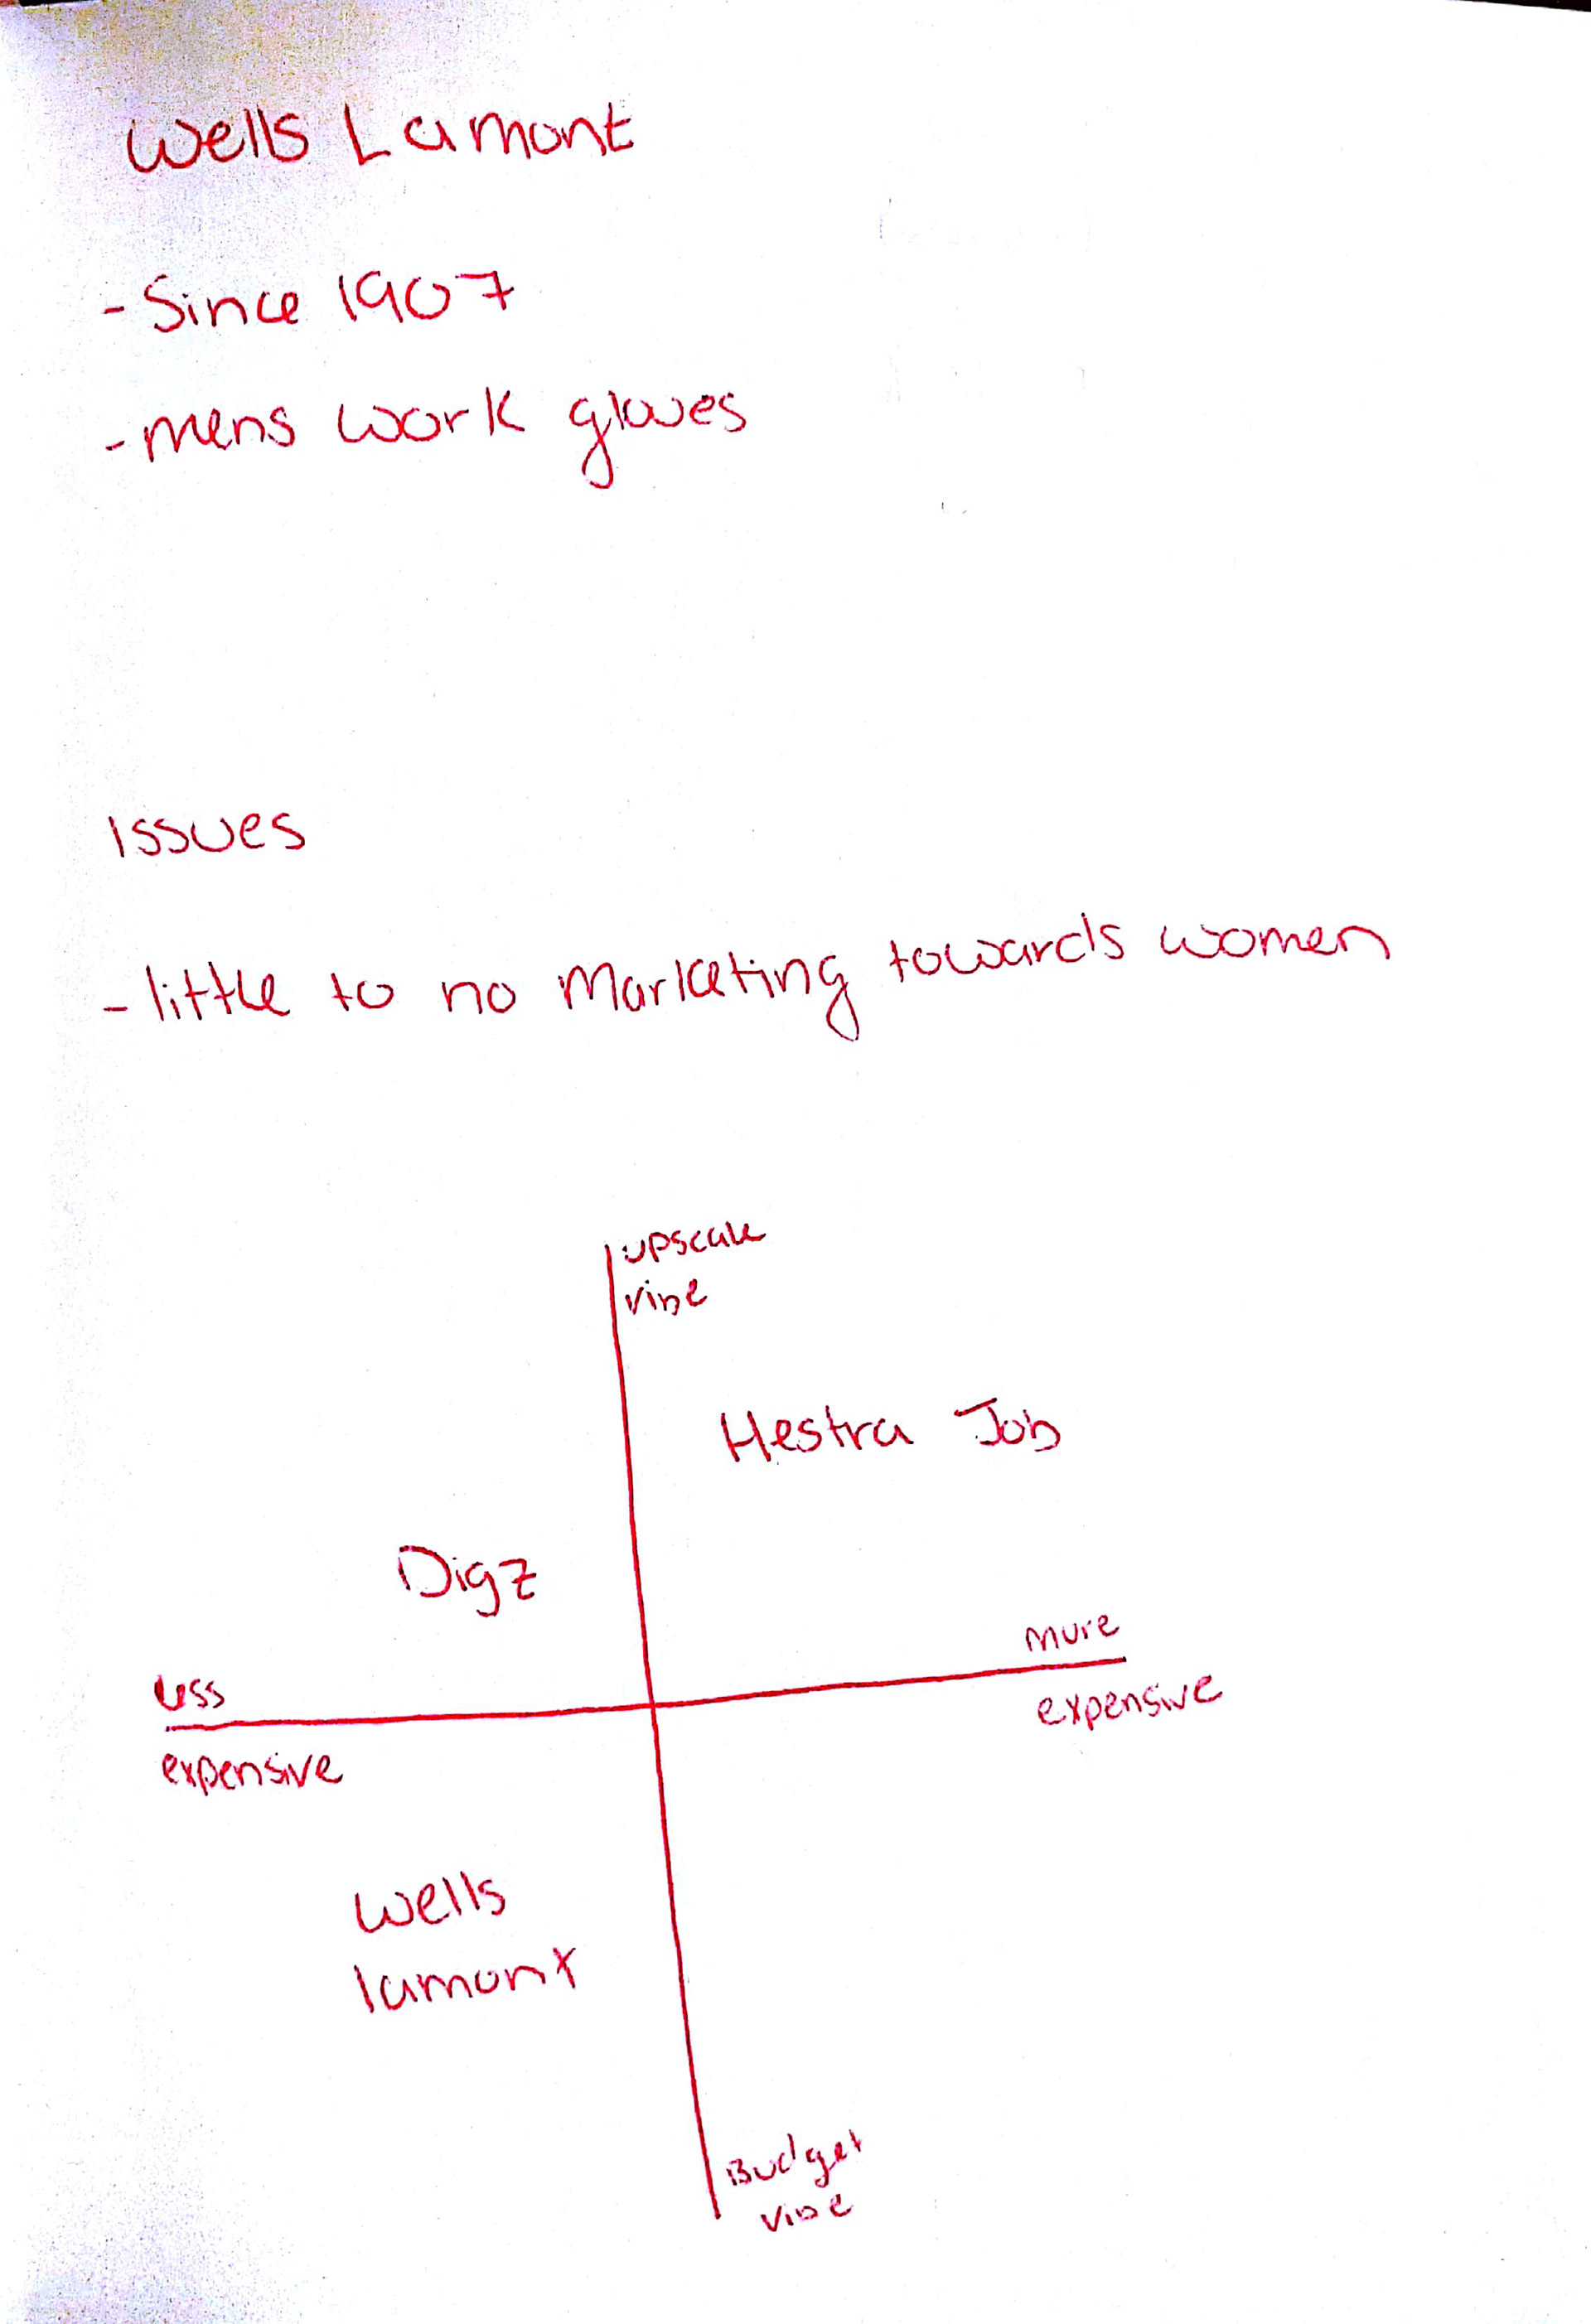 Wells Lamont
- Since 1907
- mens work gloves
Issues
- little to no Marketing towards women
upscale
vibe
Hestra Job
Digz
more
less
expensive
expensive
Wells
lamont
Budget
vibe